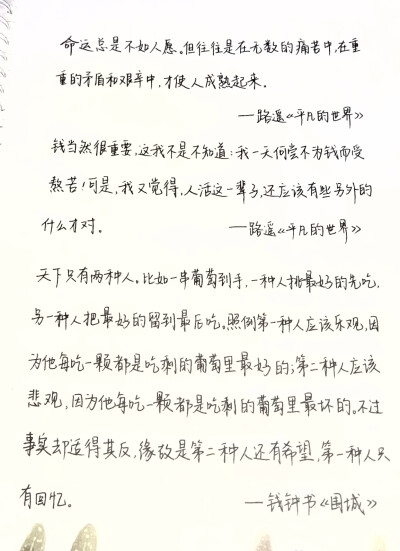 命运总是不如人愿。但往往是在无数的痛苦中,在重
重的矛盾和艰辛中,才使人成熟起来。
——路遥《平凡的世界》
钱当然很重要,这我不是不知道;我一天何尝不为钱而受
熬苦!可是,我又觉得,人活这一辈子,还应该有些另外的
什么才对。 ——路遥《平凡的世界》
天下只有两种人。比如一串葡萄到手,一种人挑最好的先吃,
另一种人把最好的留到最后吃。照例第一种人应该乐观,因
为他每吃一颗都是吃剩的葡萄里最好的;第二种人应该
悲观,因为他每吃一颗都是吃剩的葡萄里最坏的。不过
事实却适得其反,缘故是第二种人还有希望,第一种人只
有回忆。 ——钱钟书《围城》